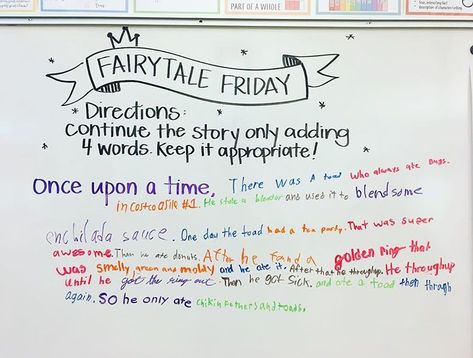 PART OF A WHOLE
FAIRYTALE FRIDAY
Directions:
Continue the story only adding
4 words. Keep it appropriate!
Once upon a time, There was A toad who always ate Bugs.
in costco aisle #1. He stole a blendor and used it to blend some
enchilada sauce. One day the toad had a tea party. That was super
awesome. Then he ate donuts. After he found a golden Ring that
was smelly green and moldy and he ate it. After that he throughup. He throughup
until he got the ring out. Then he got sick. and ate a toad then through
again. So he only ate chikin fethers and toads.